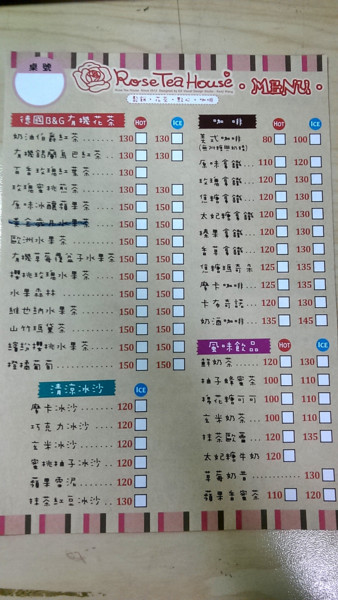 桌號
Rose Tea House
·MENU·
德國B&G有機花茶 HOT ICE
奶油伯爵紅茶 130 130
有機錫蘭烏巴紅茶 130 130
百年玫瑰紅茶 130
玫瑰蜜桃煎茶 130 130
原味冰釀蘋果茶 150 150
150 150
歐洲水果茶 150 150
有機草莓覆盆子水果茶 150 150
櫻桃玫瑰水果茶 150 150
水果森林 150 150
維也納水果茶 150 150
山竹瑪黛茶 150 150
繽紛櫻桃水果茶 150 150
橙橘葡萄 150 150
清涼冰沙 ICE
摩卡冰沙 120
巧克力冰沙 120
玄米冰沙 120
蜜桃柚子冰沙 120
蘋果雪泥 120
抹茶紅豆冰沙 130
咖啡 HOT ICE
美式咖啡 80 100
原味拿鐵 110 120
玫瑰拿鐵 120 130
焦糖拿鐵 120 130
太妃糖拿鐵 120 130
榛果拿鐵 120 130
香草拿鐵 120 130
焦糖瑪奇朵 125 135
摩卡咖啡 125 135
卡布奇諾 120 130
奶酒咖啡 135 145
風味飲品 HOT ICE
鮮奶茶 120 130
柚子蜂蜜茶 100 110
棉花糖可可 100 110
玄米奶茶 100 110
抹茶歐蕾 120 135
太妃糖牛奶 120
草莓奶昔 130
蘋果香蜜茶 110 120